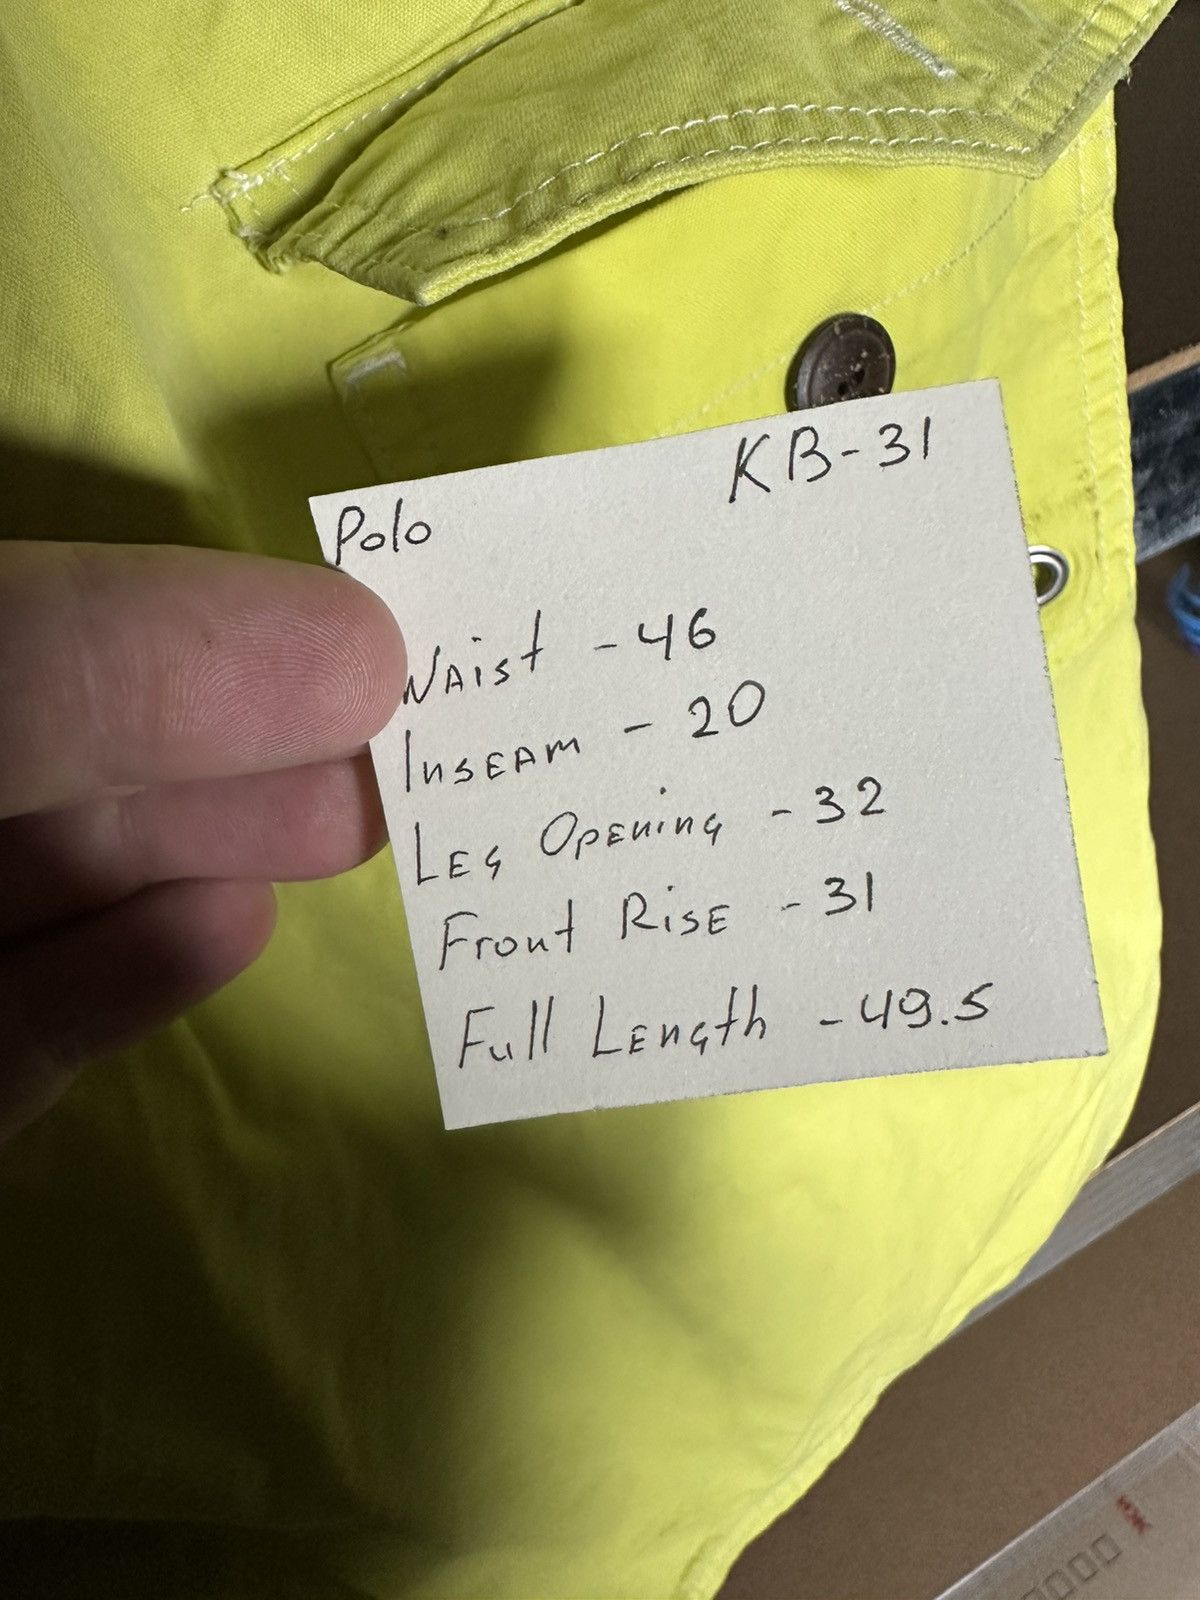 Polo KB-31
Waist - 46
Inseam - 20
Leg Opening - 32
Front Rise - 31
Full Length - 49.5